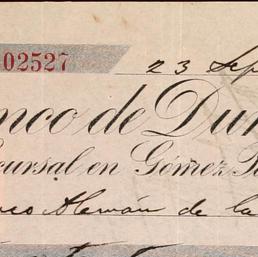 02527 23 Sep
nco de Du
cursal en Gómez Pa
nco Alemán de la